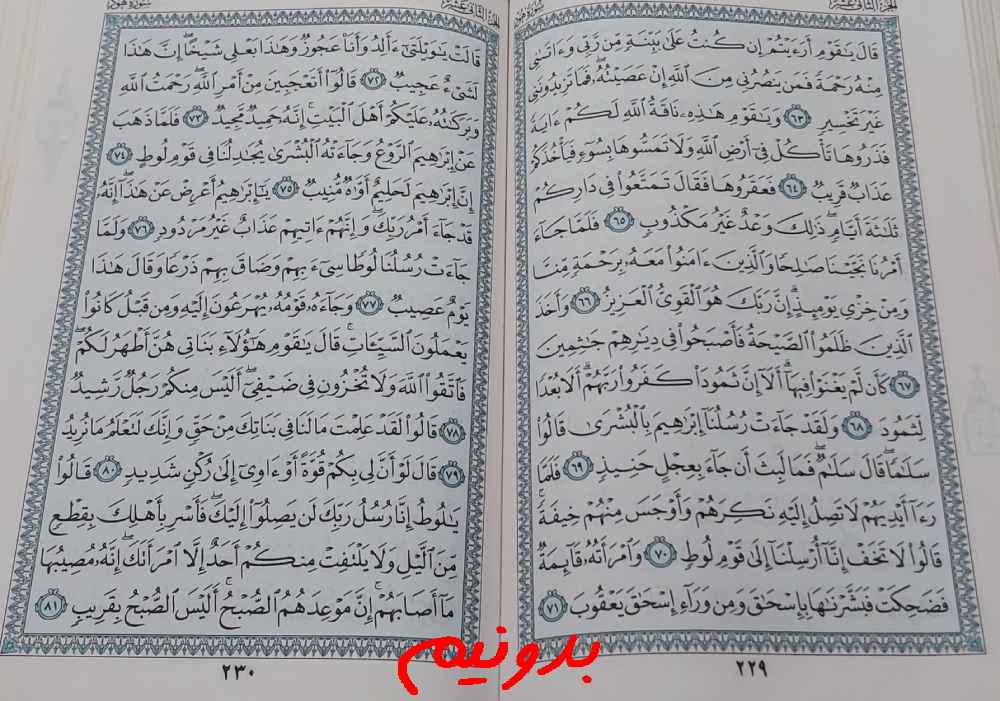 الجزء الثاني عشر
سورة هود
قَالَ يَـٰقَوْمِ أَرَءَيْتُمْ إِن كُنتُ عَلَىٰ بَيِّنَةٍ مِّن رَّبِّى وَءَاتَىٰنِى
مِنْهُ رَحْمَةً فَمَن يَنصُرُنِى مِنَ ٱللَّهِ إِنْ عَصَيْتُهُۥ فَمَا تَزِيدُونَنِى
غَيْرَ تَخْسِيرٍ ٦٣ وَيَـٰقَوْمِ هَـٰذِهِۦ نَاقَةُ ٱللَّهِ لَكُمْ ءَايَةً
فَذَرُوهَا تَأْكُلْ فِىٓ أَرْضِ ٱللَّهِ وَلَا تَمَسُّوهَا بِسُوٓءٍ فَيَأْخُذَكُمْ
عَذَابٌ قَرِيبٌ ٦٤ فَعَقَرُوهَا فَقَالَ تَمَتَّعُوا۟ فِى دَارِكُمْ
ثَلَـٰثَةَ أَيَّامٍ ذَٰلِكَ وَعْدٌ غَيْرُ مَكْذُوبٍ ٦٥ فَلَمَّا جَآءَ
أَمْرُنَا نَجَّيْنَا صَـٰلِحًا وَٱلَّذِينَ ءَامَنُوا۟ مَعَهُۥ بِرَحْمَةٍ مِّنَّا
وَمِنْ خِزْىِ يَوْمِئِذٍ إِنَّ رَبَّكَ هُوَ ٱلْقَوِىُّ ٱلْعَزِيزُ ٦٦ وَأَخَذَ
ٱلَّذِينَ ظَلَمُوا۟ ٱلصَّيْحَةُ فَأَصْبَحُوا۟ فِى دِيَـٰرِهِمْ جَـٰثِمِينَ
٦٧ كَأَن لَّمْ يَغْنَوْا۟ فِيهَآ أَلَآ إِنَّ ثَمُودَا۟ كَفَرُوا۟ رَبَّهُمْ أَلَا بُعْدًا
لِّثَمُودَ ٦٨ وَلَقَدْ جَآءَتْ رُسُلُنَآ إِبْرَٰهِيمَ بِٱلْبُشْرَىٰ قَالُوا۟
سَلَـٰمًا قَالَ سَلَـٰمٌ فَمَا لَبِثَ أَن جَآءَ بِعِجْلٍ حَنِيذٍ ٦٩ فَلَمَّا
رَءَآ أَيْدِيَهُمْ لَا تَصِلُ إِلَيْهِ نَكِرَهُمْ وَأَوْجَسَ مِنْهُمْ خِيفَةً
قَالُوا۟ لَا تَخَفْ إِنَّآ أُرْسِلْنَآ إِلَىٰ قَوْمِ لُوطٍ ٧٠ وَٱمْرَأَتُهُۥ قَآئِمَةٌ
فَضَحِكَتْ فَبَشَّرْنَـٰهَا بِإِسْحَـٰقَ وَمِن وَرَآءِ إِسْحَـٰقَ يَعْقُوبَ ٧١
٢٢٩
الجزء الثاني عشر
سورة هود
قَالَتْ يَـٰوَيْلَتَىٰٓ ءَأَلِدُ وَأَنَا۠ عَجُوزٌ وَهَـٰذَا بَعْلِى شَيْخًا إِنَّ هَـٰذَا
لَشَىْءٌ عَجِيبٌ ٧٢ قَالُوٓا۟ أَتَعْجَبِينَ مِنْ أَمْرِ ٱللَّهِ رَحْمَتُ ٱللَّهِ
وَبَرَكَـٰتُهُۥ عَلَيْكُمْ أَهْلَ ٱلْبَيْتِ إِنَّهُۥ حَمِيدٌ مَّجِيدٌ ٧٣ فَلَمَّا ذَهَبَ
عَنْ إِبْرَٰهِيمَ ٱلرَّوْعُ وَجَآءَتْهُ ٱلْبُشْرَىٰ يُجَـٰدِلُنَا فِى قَوْمِ لُوطٍ ٧٤
إِنَّ إِبْرَٰهِيمَ لَحَلِيمٌ أَوَّٰهٌ مُّنِيبٌ ٧٥ يَـٰٓإِبْرَٰهِيمُ أَعْرِضْ عَنْ هَـٰذَآ إِنَّهُۥ
قَدْ جَآءَ أَمْرُ رَبِّكَ وَإِنَّهُمْ ءَاتِيهِمْ عَذَابٌ غَيْرُ مَرْدُودٍ ٧٦ وَلَمَّا
جَآءَتْ رُسُلُنَا لُوطًا سِىٓءَ بِهِمْ وَضَاقَ بِهِمْ ذَرْعًا وَقَالَ هَـٰذَا
يَوْمٌ عَصِيبٌ ٧٧ وَجَآءَهُۥ قَوْمُهُۥ يُهْرَعُونَ إِلَيْهِ وَمِن قَبْلُ كَانُوا۟
يَعْمَلُونَ ٱلسَّيِّـَٔاتِ قَالَ يَـٰقَوْمِ هَـٰٓؤُلَآءِ بَنَاتِى هُنَّ أَطْهَرُ لَكُمْ
فَٱتَّقُوا۟ ٱللَّهَ وَلَا تُخْزُونِ فِى ضَيْفِىٓ أَلَيْسَ مِنكُمْ رَجُلٌ رَّشِيدٌ
٧٨ قَالُوا۟ لَقَدْ عَلِمْتَ مَا لَنَا فِى بَنَاتِكَ مِنْ حَقٍّ وَإِنَّكَ لَتَعْلَمُ مَا نُرِيدُ
٧٩ قَالَ لَوْ أَنَّ لِى بِكُمْ قُوَّةً أَوْ ءَاوِىٓ إِلَىٰ رُكْنٍ شَدِيدٍ ٨٠ قَالُوا۟
يَـٰلُوطُ إِنَّا رُسُلُ رَبِّكَ لَن يَصِلُوٓا۟ إِلَيْكَ فَأَسْرِ بِأَهْلِكَ بِقِطْعٍ
مِّنَ ٱلَّيْلِ وَلَا يَلْتَفِتْ مِنكُمْ أَحَدٌ إِلَّا ٱمْرَأَتَكَ إِنَّهُۥ مُصِيبُهَا
مَآ أَصَابَهُمْ إِنَّ مَوْعِدَهُمُ ٱلصُّبْحُ أَلَيْسَ ٱلصُّبْحُ بِقَرِيبٍ ٨١
٢٣٠
بدونيم